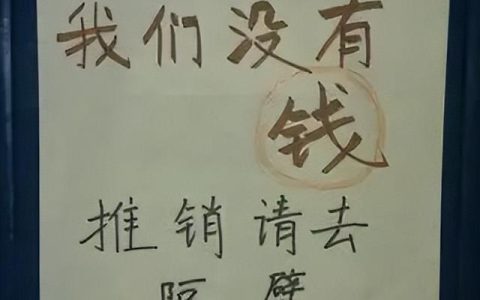 我们没有
钱
推销请去
隔壁